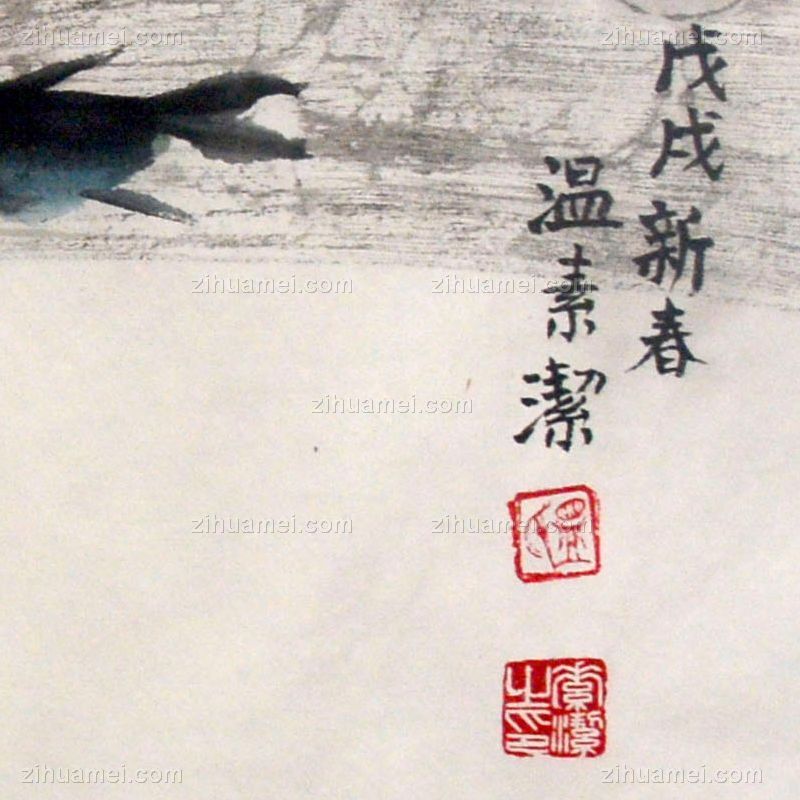 戊戌新春
温素潔
温
素潔之印
zihuamei.com
zihuamei.com
zihuamei.com
zihuamei.com
zihuamei.com
zihuamei.com
zihuamei.com
zihuamei.com
zihuamei.com